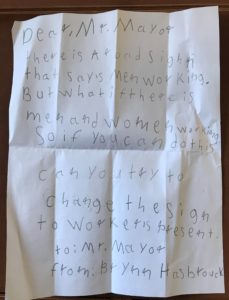 Dear, Mr. Mayor
there is A road sighn
that says Men working.
But what if there is
men and women working
So if you can do this
can you try to
change the sign
to workers present.
to: Mr. Mayor
from: Brynn Hasbrouck